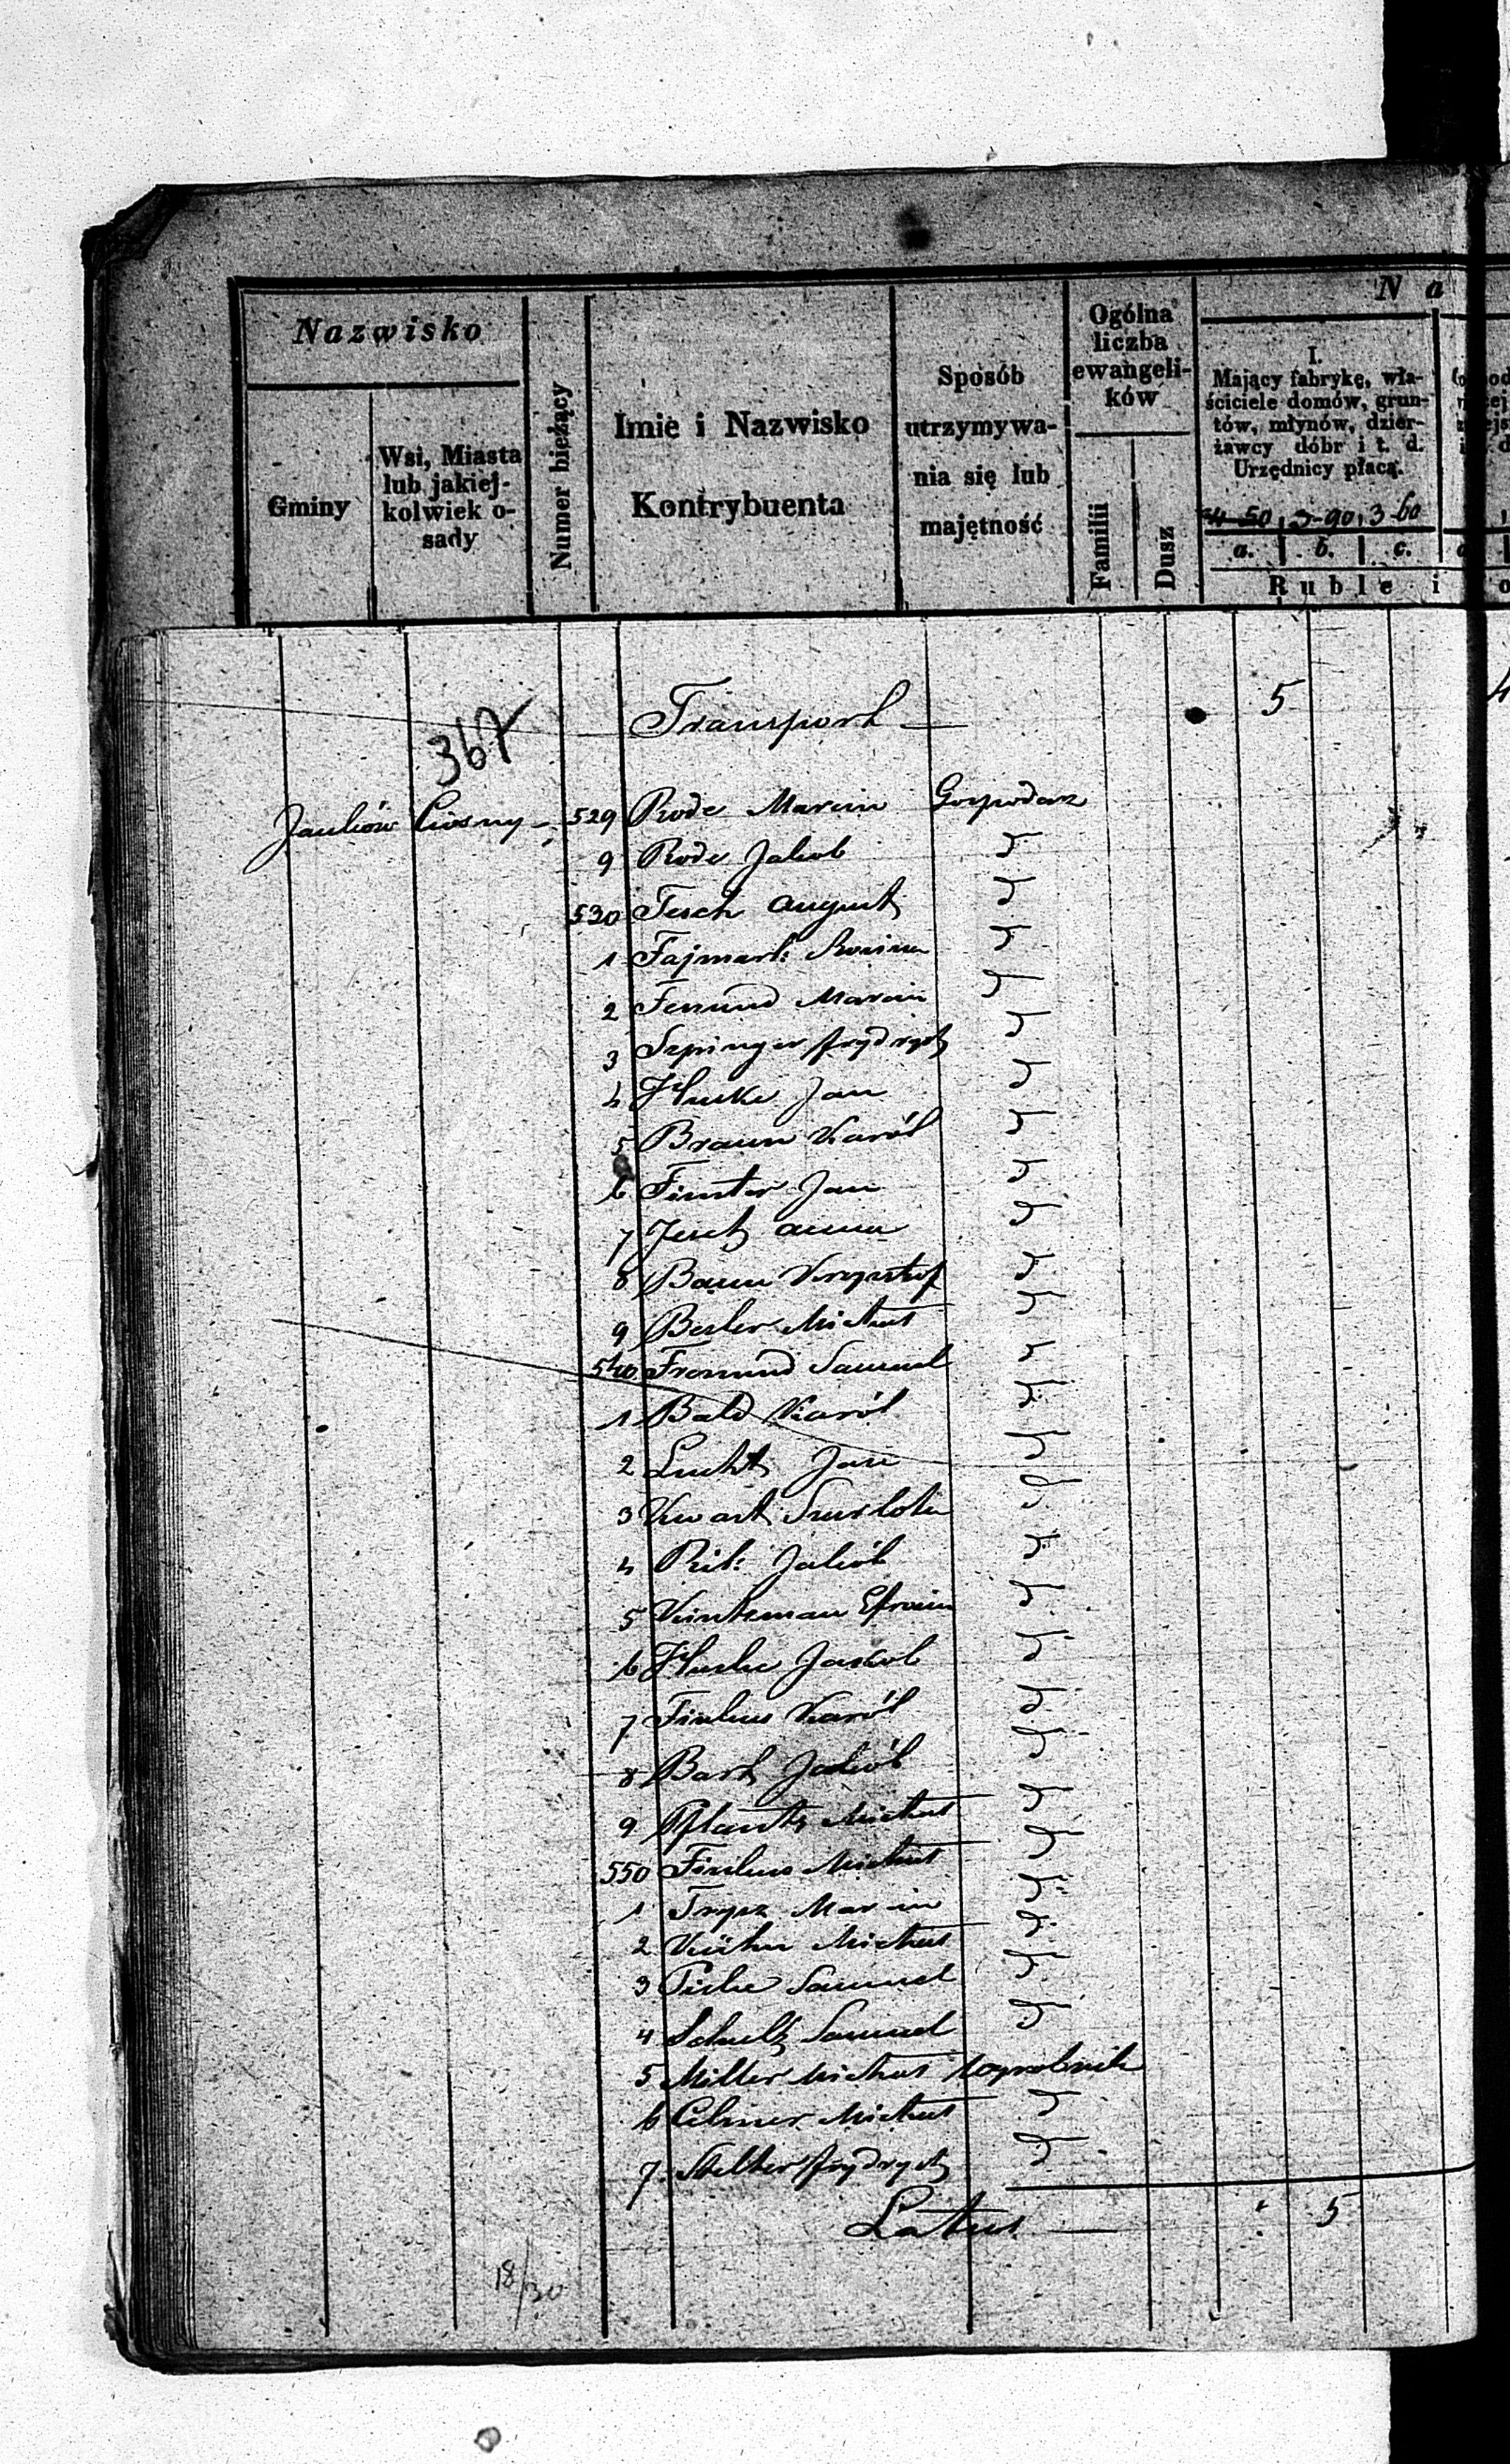 Nazwisko
Gminy
Wsi, Miasta
lub jakiej-
kolwiek o-
sady
Numer bieżący
Imie i Nazwisko
Kontrybuenta
Sposób
utrzymywa-
nia się lub
majętność
Ogólna
liczba
ewangeli-
ków
Familii
Dusz
N a
I.
Mający fabrykę, wła-
ściciele domów, grun-
tów, młynów, dzier-
żawcy dóbr i t. d.
Urzędnicy płacą.
4-50 3-90 3-60
a. b. c.
Ruble i
Transport — 5
367
Janków Ciosny 529 Rode Marcin Gospodarz
9 Rode Jakob d
530 Tesch August d
1 Fajmark: Rosina d
2 Marcin d
3 Szpinger Frydrych d
4 Huske Jan d
5 Braun Karól d
6 Finster Jan d
7 Jesch Anna d
8 Baum Krzysztof d
9 Besler Michał d
540 Fromund Samuel d
1 Bald Karól d
2 Lucht Jan d
3 Kwast Szarlota d
4 Jakób d
5 Kuntzman Efraim d
6 Huske Jakob d
7 Karól d
8 Bark Jakób d
9 Pflantz Michał d
550 Michał d
1 Trysz Marcin d
2 Kühn Michał d
3 Samuel d
4 Schultz Samuel d
5 Miller Michał Wyrobnik
6 Celmer Michał d
7 Stelter Frydrych d
Latus — 5
18/30